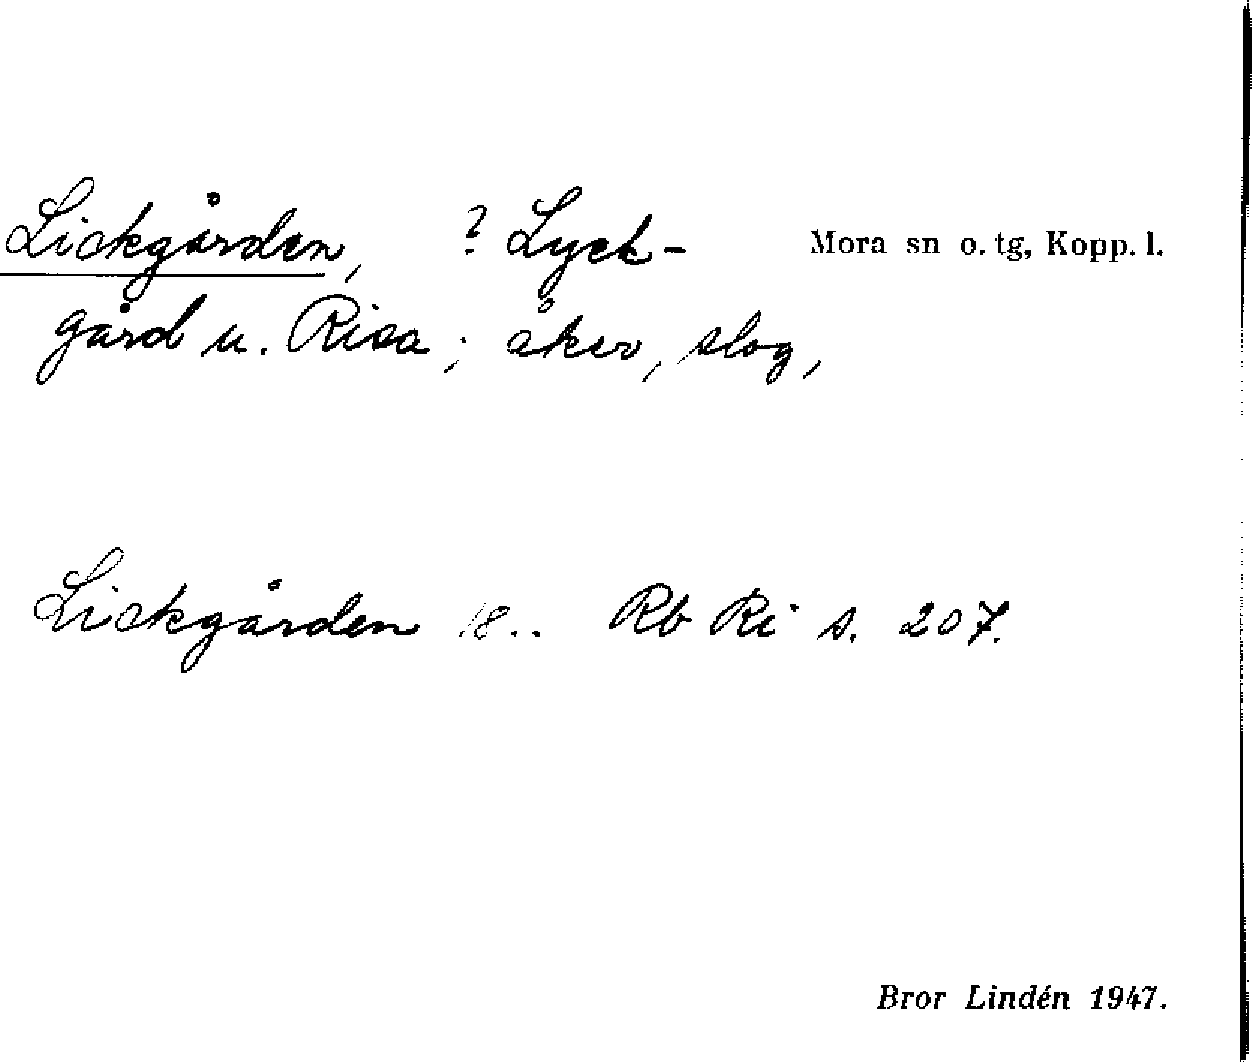 Lickgården, ? Lyck- Mora sn o. tg, Kopp. l.
gård u. Risa; åker, slog,
Lickgården 18.. Rb Ri s. 207.
Bror Lindén 1947.